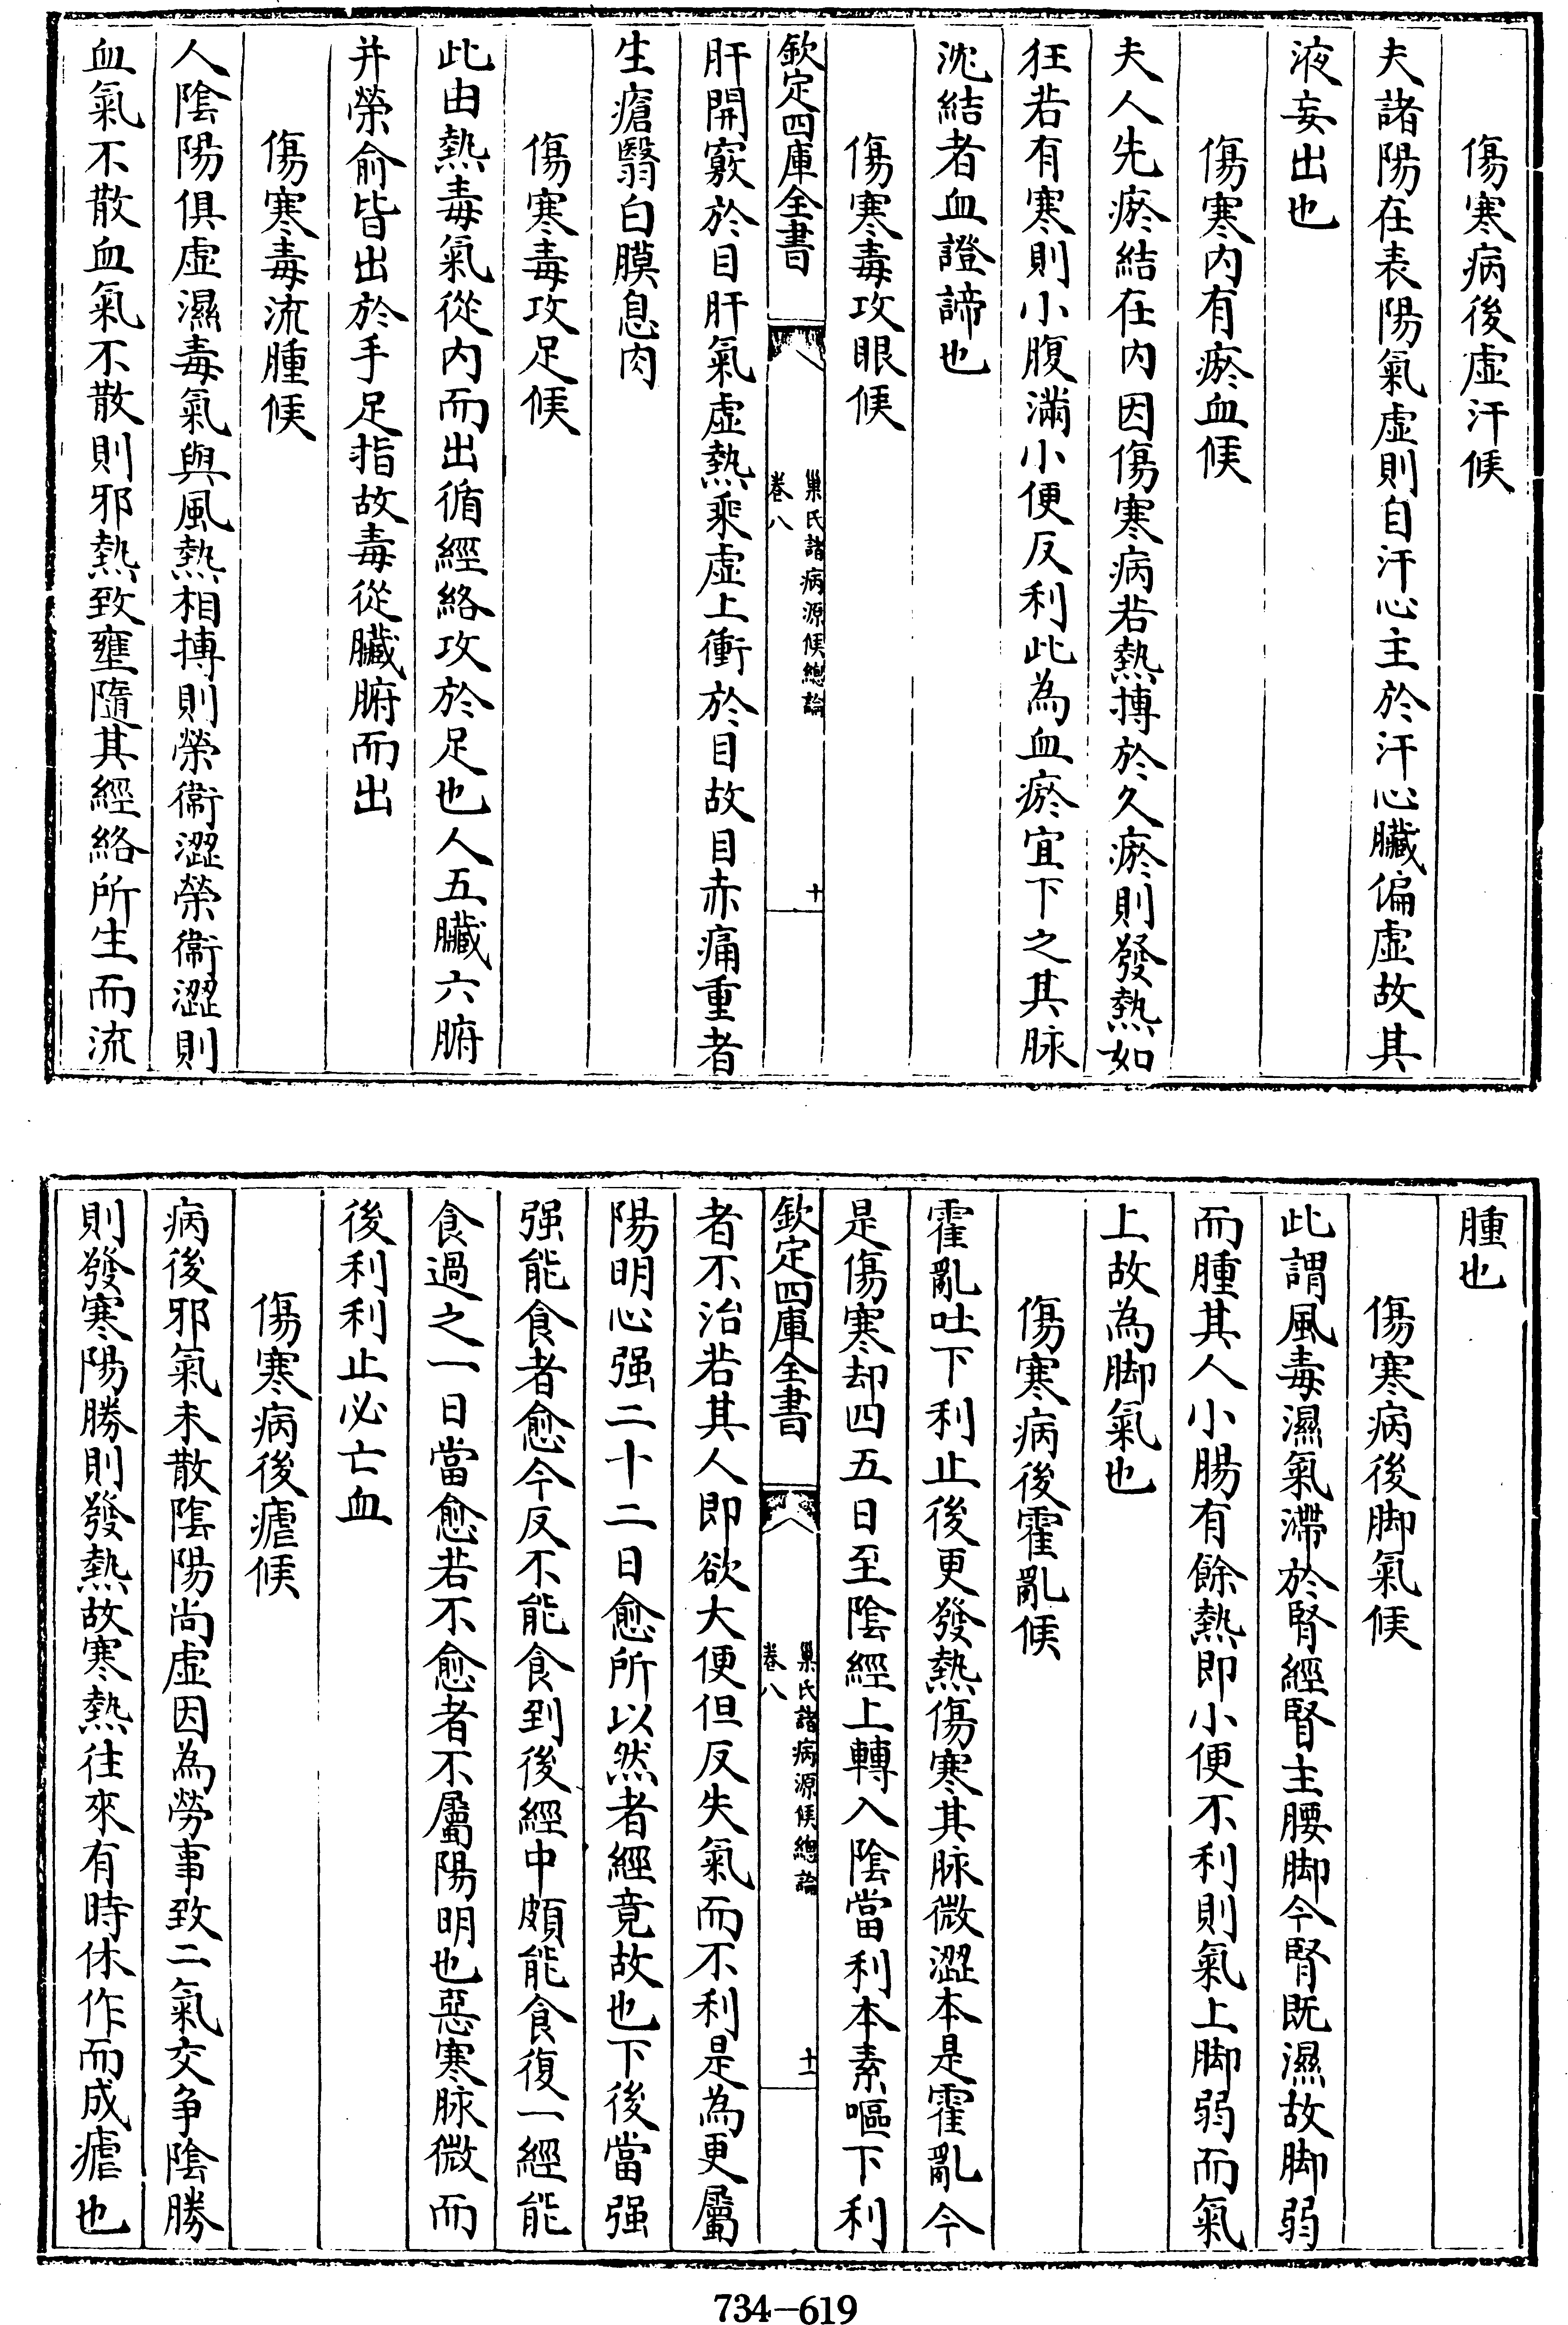 傷寒病後虛汗候
夫諸陽在表陽氣虛則自汗心主於汗心臟偏虛故其
液妄出也
傷寒内有瘀血候
夫人先瘀結在内因傷寒病若熱搏於久瘀則發熱如
狂若有寒則小腹滿小便反利此為血瘀宜下之其脉
沈結者血證諦也
傷寒毒攻眼候
欽定四庫全書
巢氏諸病源候總論
卷八
十
肝開竅於目肝氣虛熱乘虛上衝於目故目赤痛重者
生瘡翳白膜息肉
傷寒毒攻足候
此由熱毒氣從内而出循經絡攻於足也人五臟六腑
并榮俞皆出於手足指故毒從臟腑而出
傷寒毒流腫候
人陰陽俱虛濕毒氣與風熱相搏則榮衞澀榮衞澀則
血氣不散血氣不散則邪熱致壅隨其經絡所生而流
腫也
傷寒病後脚氣候
此謂風毒濕氣滯於腎經腎主腰脚今腎既濕故脚弱
而腫其人小腸有餘熱即小便不利則氣上脚弱而氣
上故為脚氣也
傷寒病後霍亂候
霍亂吐下利止後更發熱傷寒其脉微澀本是霍亂今
是傷寒却四五日至陰經上轉入陰當利本素嘔下利
欽定四庫全書
巢氏諸病源候總論
卷八
十一
者不治若其人即欲大便但反失氣而不利是為更屬
陽明心强二十二日愈所以然者經竟故也下後當强
强能食者愈今反不能食到後經中頗能食復一經能
食過之一日當愈若不愈者不屬陽明也惡寒脉微而
後利利止必亡血
傷寒病後瘧候
病後邪氣未散陰陽尚虛因為勞事致二氣交争陰勝
則發寒陽勝則發熱故寒熱往來有時休作而成瘧也
734-619